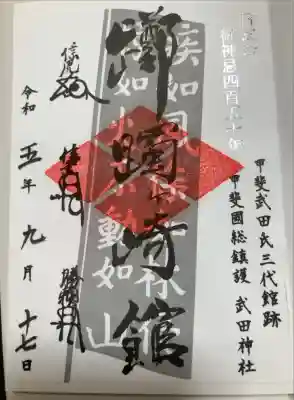 御神忌四百五十年
甲斐武田氏三代館跡
甲斐國総鎮護 武田神社
躑躅崎館
疾如風徐如林侵
掠如火不動如山
信虎
勝頼
令和五年九月十七日